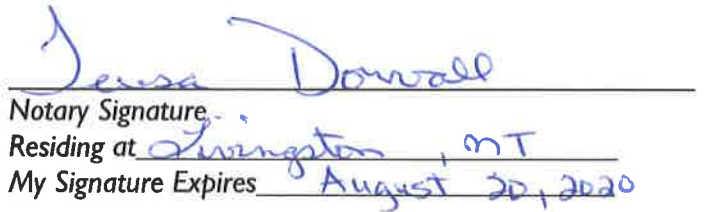 Teresa Dowall
Notary Signature
Residing at Livingston, MT
My Signature Expires August 20, 2020